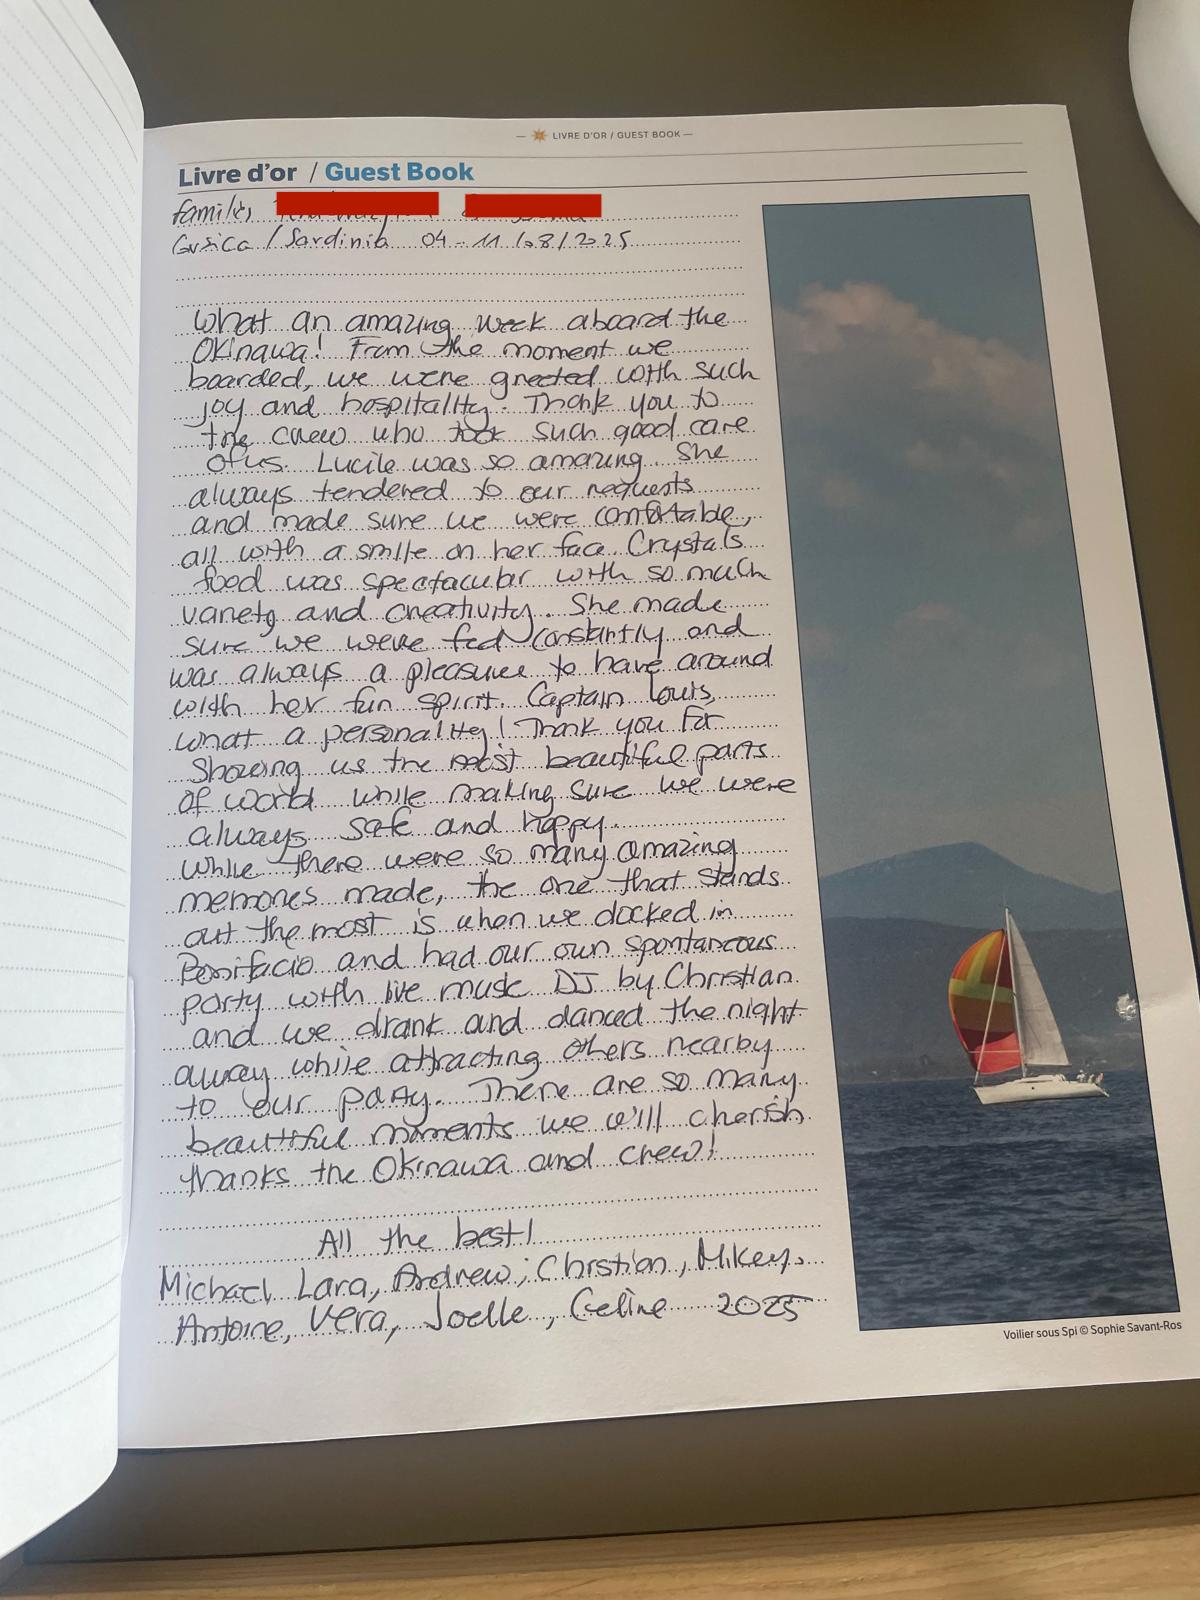 LIVRE D'OR / GUEST BOOK
Livre d'or / Guest Book
Corsica / Sardinia 04 - 11 / 08 / 2025
What an amazing week aboard the
Okinawa! From the moment we
boarded, we were greeted with such
joy and hospitality. Thank you to
the crew who took such good care
of us. Lucile was so amazing. She
always tendered to our requests
and made sure we were comfortable,
all with a smile on her face. Crystals
food was spectacular with so much
variety and creativity. She made
sure we were fed constantly and
was always a pleasure to have around
with her fun spirit. Captain Louis,
what a personality! Thank you for
showing us the most beautiful parts
of world while making sure we were
always safe and happy.
While there were so many amazing
memories made, the one that stands
out the most is when we docked in
Bonifacio and had our own spontaneous
party with live music DJ by Christian
and we drank and danced the night
away while attracting others nearby
to our party. There are so many
beautiful moments we will cherish
thanks the Okinawa and crew!
All the best!
Michael, Lara, Andrew, Christian, Mikey,
Antoine, Vera, Joelle, Celine 2025
Voilier sous Spi © Sophie Savant-Ros